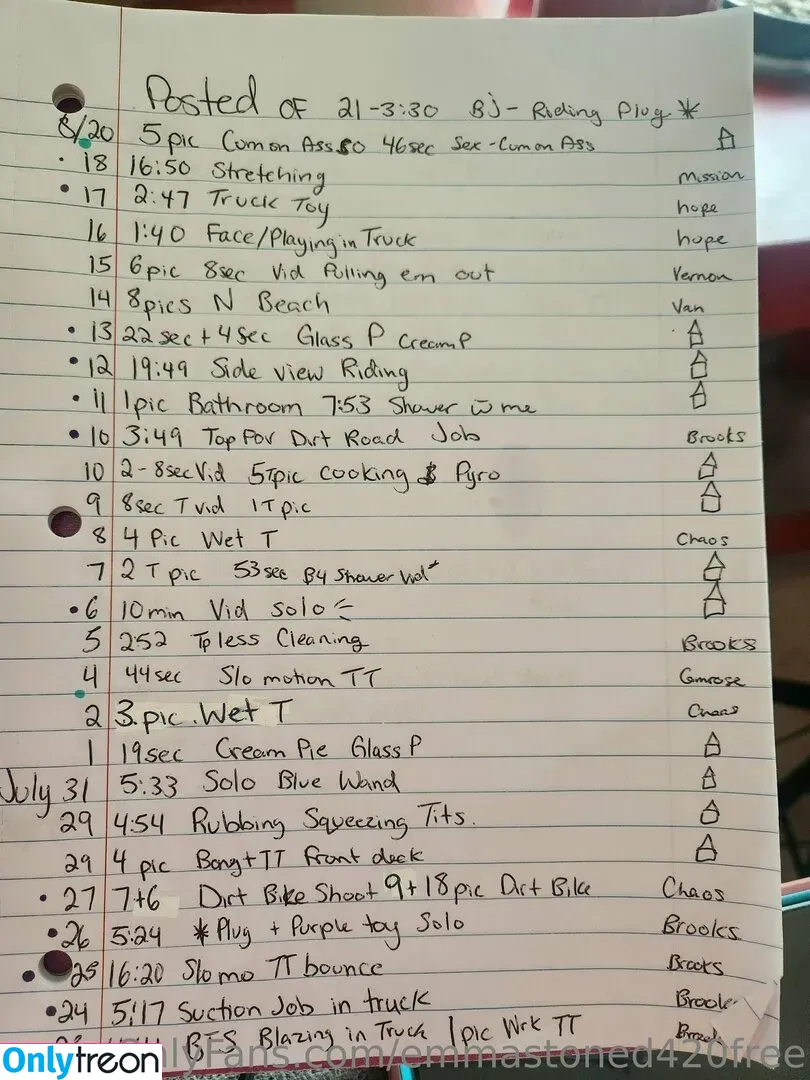 Posted OF 21-3:30 BJ- Riding Plug *
8/20 5pic Cum on Ass 46sec Sex-Cum on Ass
18 16:50 Stretching Mission
17 2:47 Truck Toy hope
16 1:40 Face/Playing in Truck hope
15 6pic 8sec Vid Pulling em out Vernon
14 8pics N Beach Van
13 22sec+4sec Glass P CreamP
12 19:49 Side view Riding
11 1pic Bathroom 7:53 Shower w me
10 3:49 Top Pov Dirt Road Job Brooks
10 2-8sec Vid 5Tpic cooking & Pyro
9 8sec T vid 1T pic
8 4 Pic Wet T Chaos
7 2 T pic 53sec B4 Shower Vid*
6 10min Vid solo
5 2:52 Tpless Cleaning Brooks
4 44sec Slo motion TT Camrose
2 3.pic.Wet T Chaos
1 19sec Cream Pie Glass P
July 31 5:33 Solo Blue Wand
29 4:54 Rubbing Squeezing Tits.
29 4 pic Bong+TT front deck
27 7+6 Dirt Bike Shoot 9+18pic Dirt Bike Chaos
26 5:24 *Plug + Purple toy Solo Brooks
25 16:20 Slo mo TT bounce Brooks
24 5:17 Suction Job in truck Brooks
BTS Blazing in Truck 1pic Wrk TT
OnlyFans.com/emmastoned420free
Onlytreon